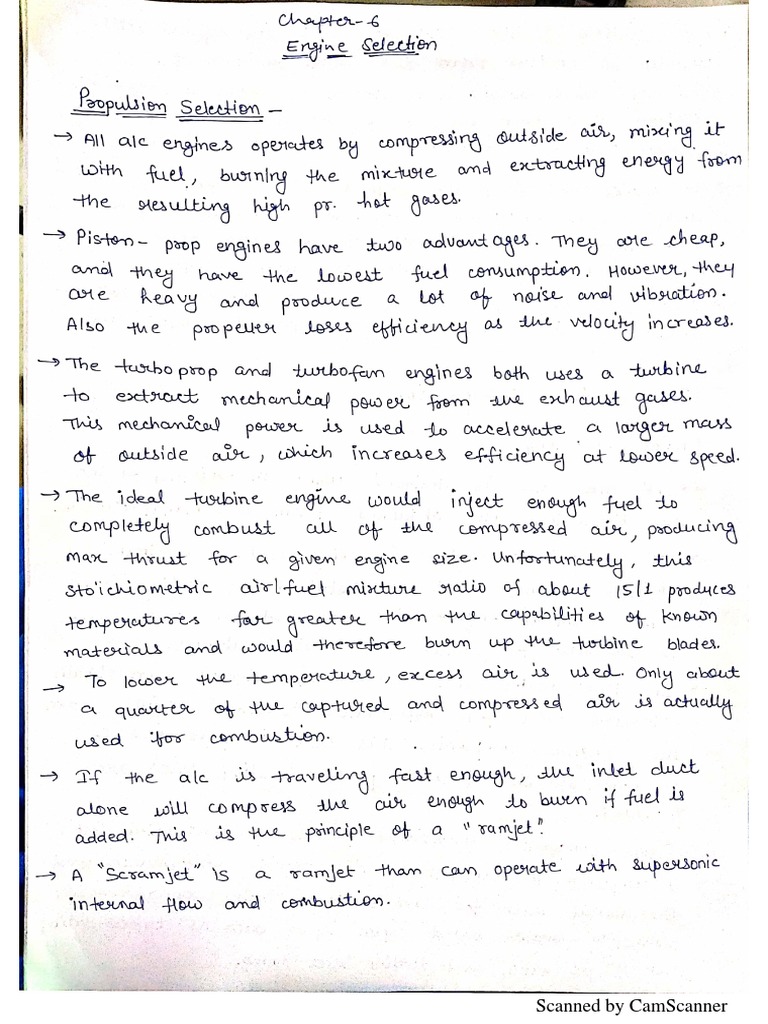 Chapter-6
Engine Selection
Propulsion Selection -
→ All a/c engines operates by compressing outside air, mixing it
with fuel, burning the mixture and extracting energy from
the resulting high pr. hot gases.
→ Piston- prop engines have two advantages. They are cheap,
and they have the lowest fuel consumption. However, they
are heavy and produce a lot of noise and vibration.
Also the propeller loses efficiency as the velocity increases.
→ The turboprop and turbofan engines both uses a turbine
to extract mechanical power from the exhaust gases.
This mechanical power is used to accelerate a larger mass
of outside air, which increases efficiency at lower speed.
→ The ideal turbine engine would inject enough fuel to
completely combust all of the compressed air, producing
max thrust for a given engine size. Unfortunately, this
stoichiometric air/fuel mixture ratio of about 15/1 produces
temperatures far greater than the capabilities of known
materials and would therefore burn up the turbine blades.
→ To lower the temperature, excess air is used. Only about
a quarter of the captured and compressed air is actually
used for combustion.
→ If the a/c is traveling fast enough, the inlet duct
alone will compress the air enough to burn if fuel is
added. This is the principle of a "ramjet".
→ A "Scramjet" is a ramjet than can operate with supersonic
internal flow and combustion.
Scanned by CamScanner